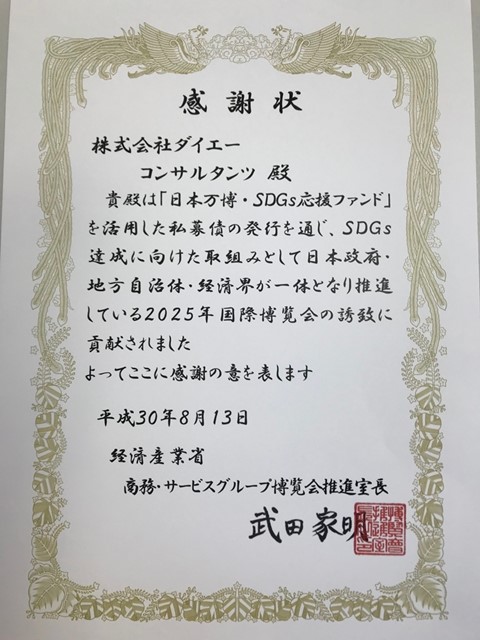 感謝状
株式会社ダイエー
コンサルタンツ 殿
貴殿は「日本万博・SDGs応援ファンド」
を活用した私募債の発行を通じ、SDGs
達成に向けた取組みとして日本政府・
地方自治体・経済界が一体となり推進
している2025年国際博覧会の誘致に
貢献されました
よってここに感謝の意を表します
平成30年8月13日
経済産業省
商務・サービスグループ博覧会推進室長
武田家明